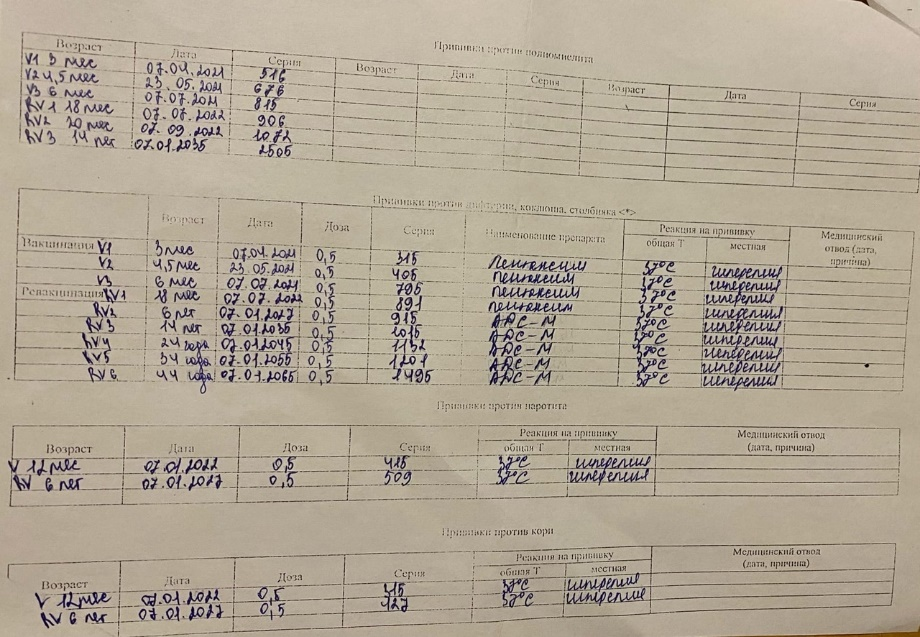 Прививки против полиомиелита
Возраст Дата Серия Возраст Дата Серия Возраст Дата Серия
V1 3 мес 07.04.2021 516
V2 4,5 мес 23.05.2021 676
V3 6 мес 07.07.2021 815
RV1 18 мес 07.07.2022 906
RV2 20 мес 07.09.2022 1072
RV3 14 лет 07.01.2035 2505
Прививки против дифтерии, коклюша, столбняка <*>
Возраст Дата Доза Серия Наименование препарата Реакция на прививку Медицинский отвод (дата, причина)
общая Т местная
Вакцинация V1 3 мес 07.04.2021 0,5 315 Пентаксим 37°С гиперемия
V2 4,5 мес 23.05.2021 0,5 405 Пентаксим 37°С гиперемия
V3 6 мес 07.07.2021 0,5 795 Пентаксим 37°С гиперемия
Ревакцинация RV1 18 мес 07.07.2022 0,5 891 Пентаксим 37°С гиперемия
RV2 6 лет 07.01.2027 0,5 915 АДС-М 37°С гиперемия
RV3 14 лет 07.01.2035 0,5 1015 АДС-М 37°С гиперемия
RV4 24 года 07.01.2045 0,5 1132 АДС-М 37°С гиперемия
RV5 34 года 07.01.2055 0,5 1201 АДС-М 37°С гиперемия
RV6 44 года 07.01.2065 0,5 1495 АДС-М 37°С гиперемия
Прививки против паротита
Возраст Дата Доза Серия Реакция на прививку Медицинский отвод
общая Т местная (дата, причина)
V 12 мес 07.01.2022 0,5 415 37°С гиперемия
RV 6 лет 07.01.2027 0,5 509 37°С гиперемия
Прививки против кори
Возраст Дата Доза Серия Реакция на прививку Медицинский отвод
общая Т местная (дата, причина)
V 12 мес 07.01.2022 0,5 315 37°С гиперемия
RV 6 лет 07.01.2027 0,5 427 37°С гиперемия